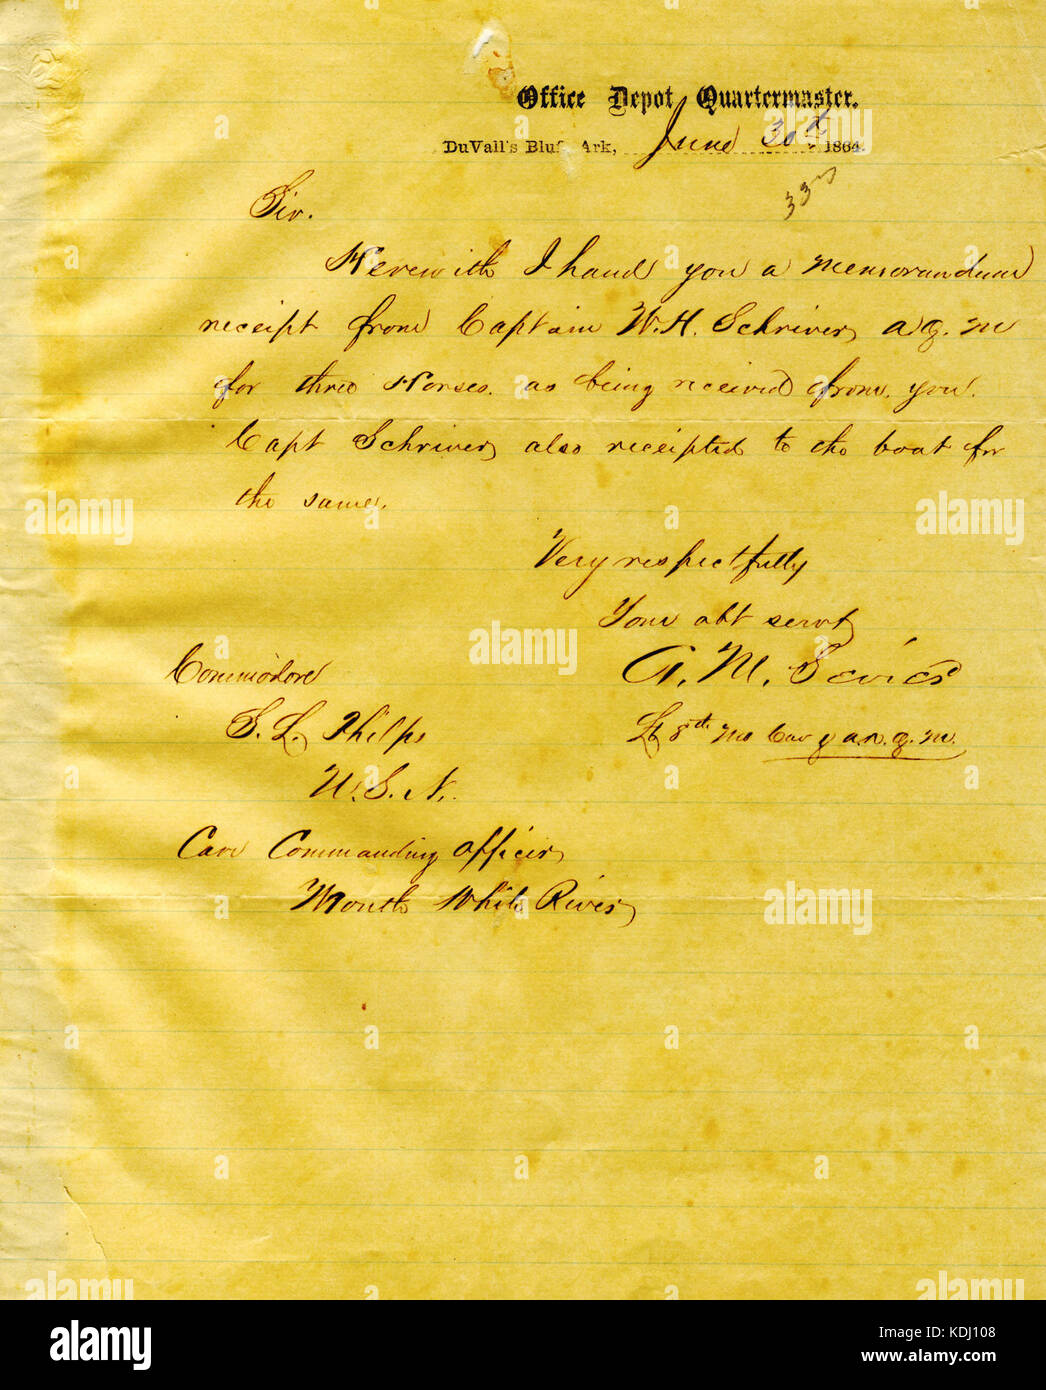 Office Depot Quartermaster.
DuVall's Bluff Ark, June 30th 1864.
33
Sir.
Herewith I hand you a memorandum
receipt from Captain W. H. Schriver, a q. m
for three Horses. as being received from you.
Capt Schriver also receipted to the boat for
the same.
Very respectfully
Your obt servt
G. M.
Lt 8th Mo Cav & a.a.q.m.
Commodore
S. L. Phelps
U. S. N.
Care Commanding officer
Mouth White River
alamy
alamy
Image ID: KDJ108
www.alamy.com